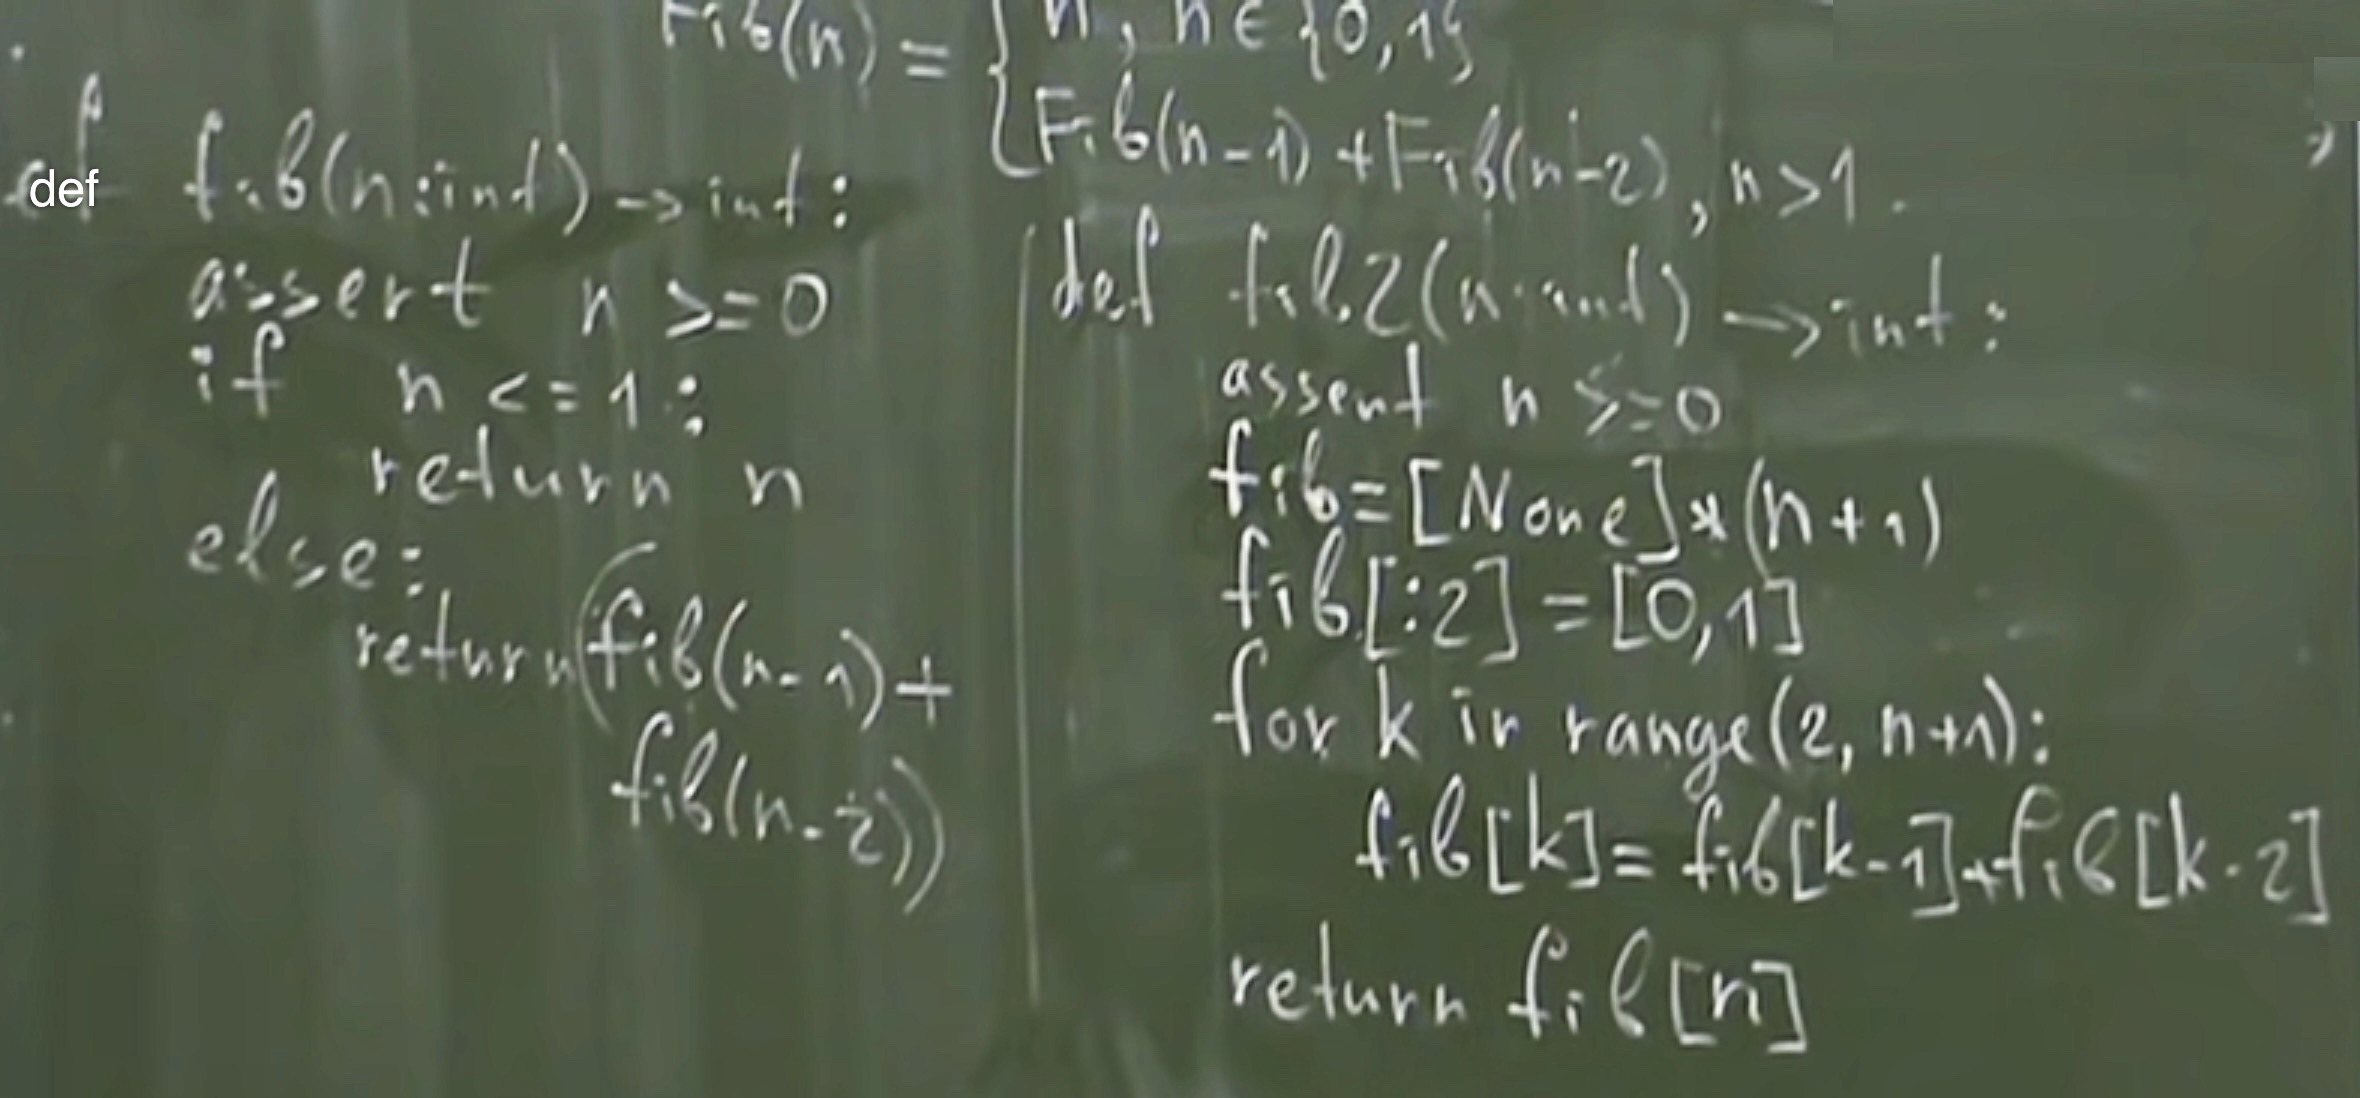 Fib(n) = { n, n ∈ {0,1}
Fib(n-1) + Fib(n-2), n>1.
def fib(n:int) -> int:
assert n >= 0
if n <= 1:
return n
else:
return (fib(n-1)+
fib(n-2))
def fib2(n:int) -> int:
assert n >= 0
fib=[None]*(n+1)
fib[:2] = [0,1]
for k in range(2, n+1):
fib[k] = fib[k-1]+fib[k-2]
return fib[n]